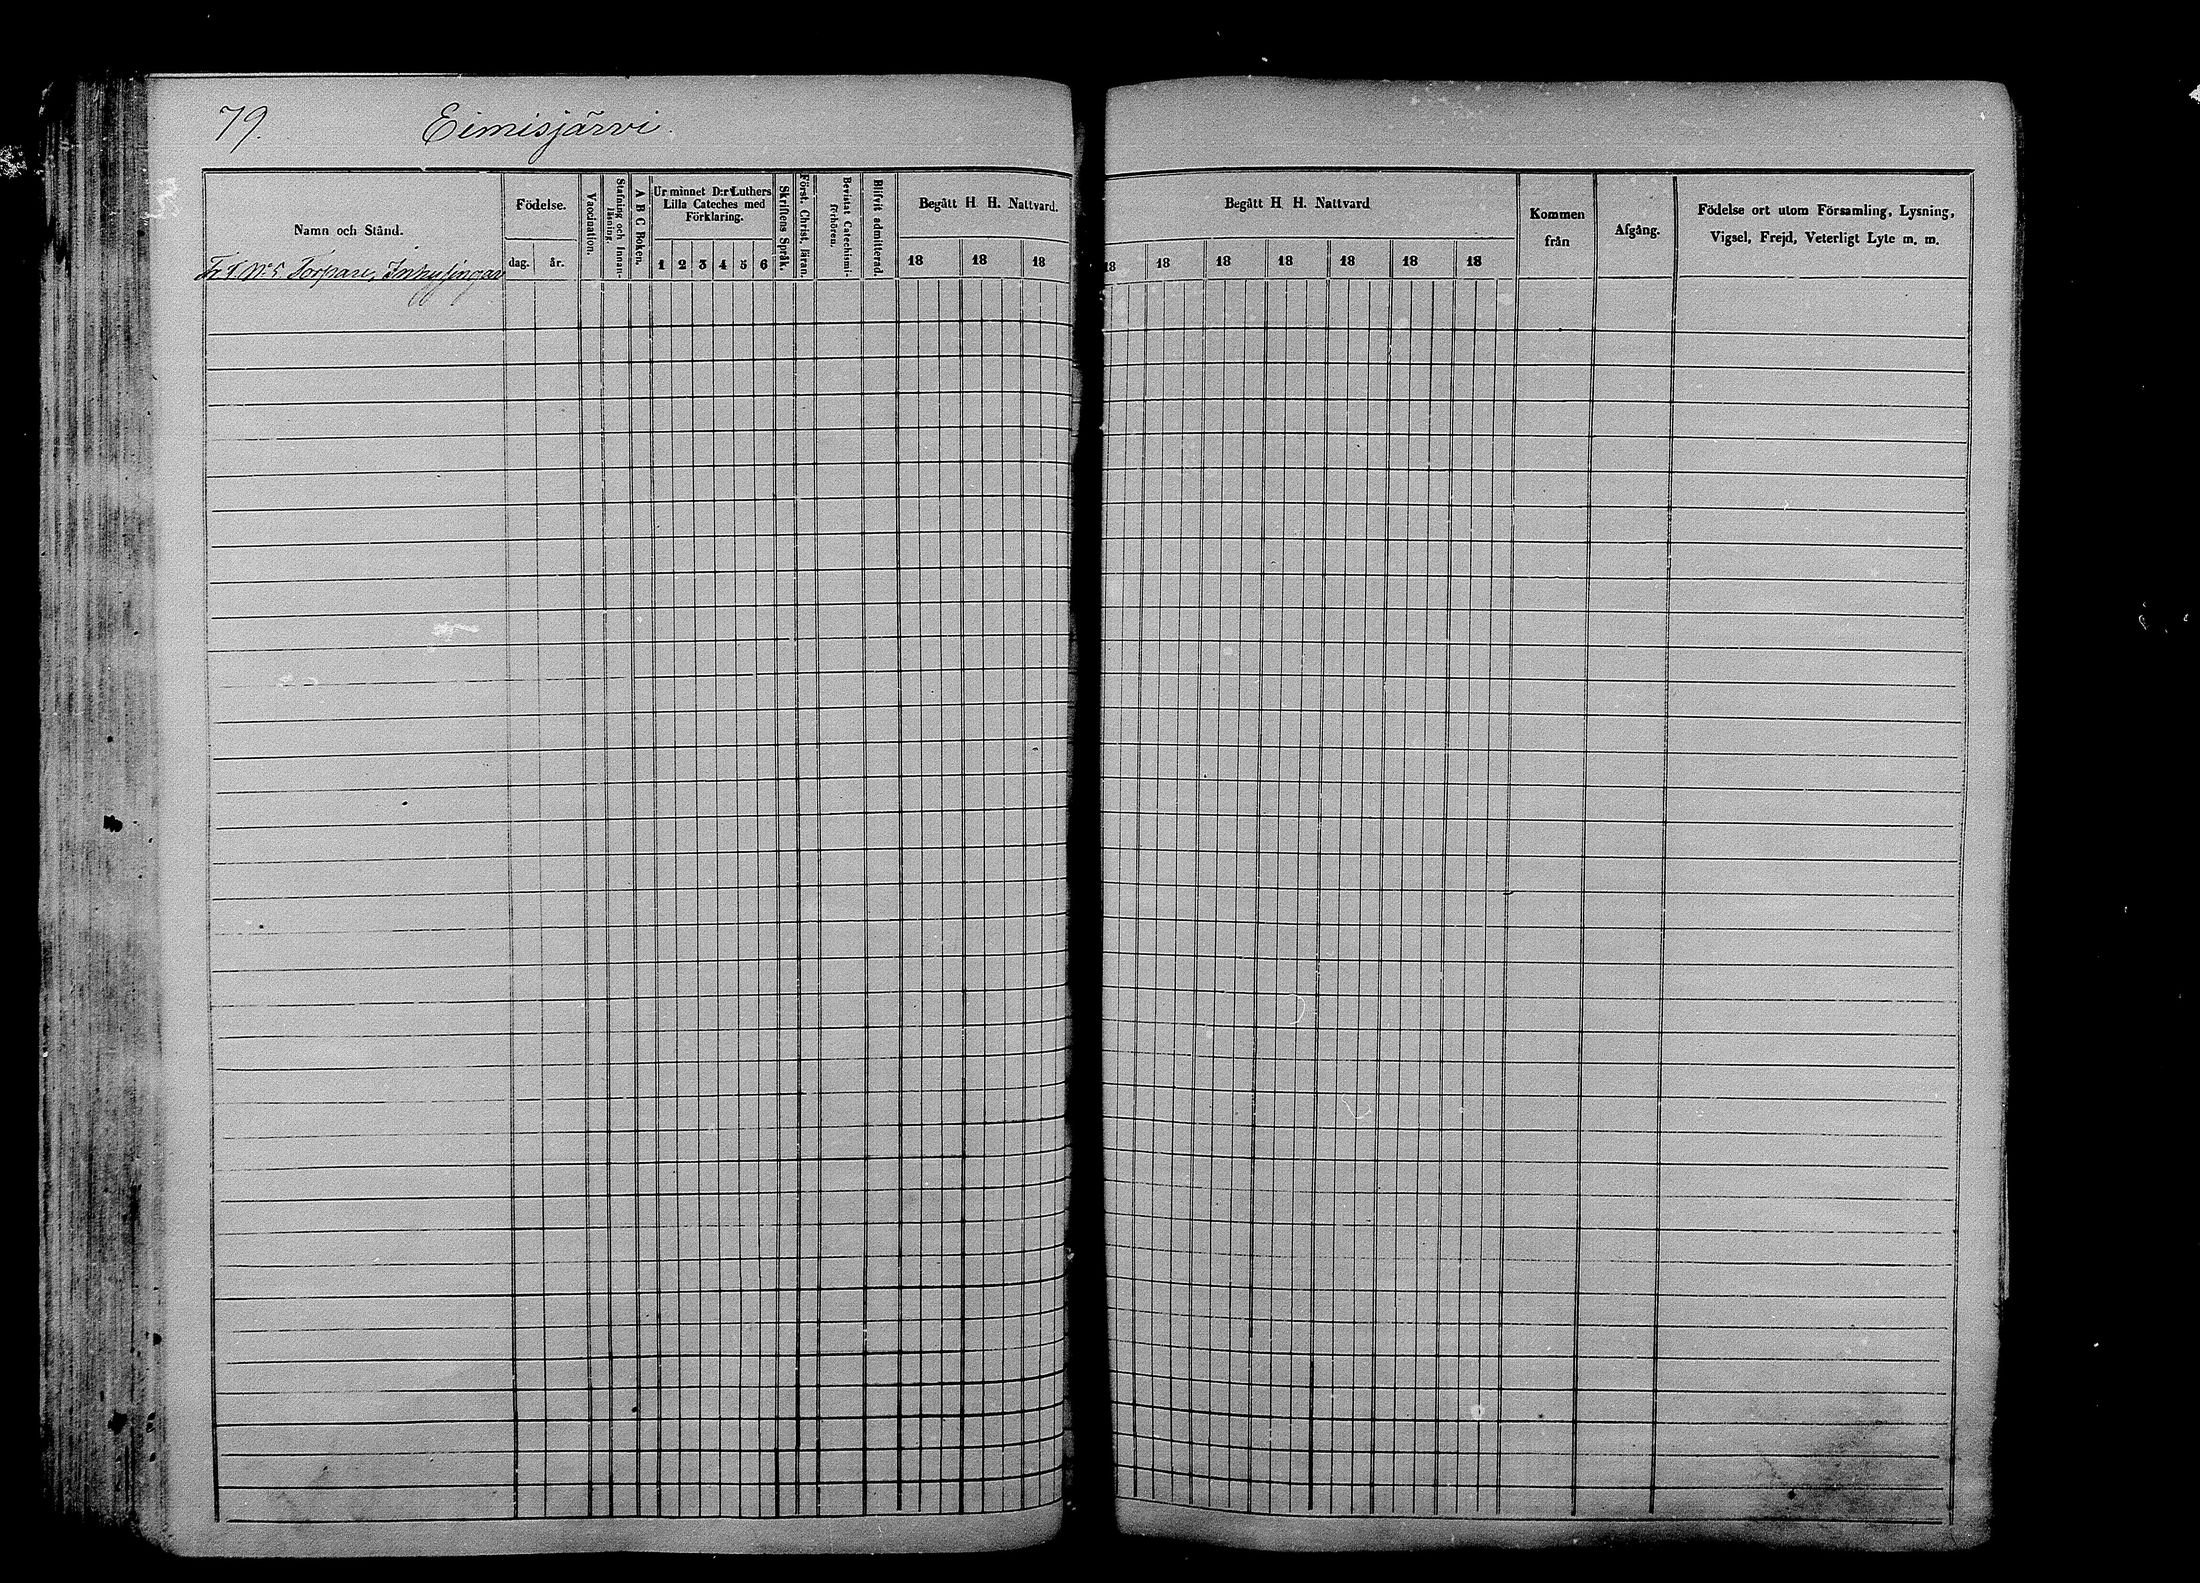 79. Eimisjärvi.
Namn och Stånd.
Födelse.
dag. år.
Vaccination.
Stafning och Innanläsning.
A B C Boken.
Ur minnet D:r Luthers Lilla Cateches med Förklaring.
1 2 3 4 5 6
Skriftens Språk.
Först. Christ. läran.
Bevistat Catechismi-förhören.
Blifvit admitterad.
Begått H. H. Nattvard.
18 18 18
Begått H. H. Nattvard
18 18 18 18 18 18 18
Kommen från
Afgång.
Födelse ort utom Församling, Lysning,
Vigsel, Frejd, Veterligt Lyte m. m.
Torpare, Inhysingar